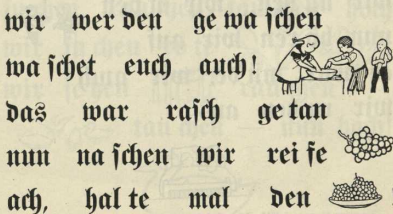 wir wer den ge wa ſchen
wa ſchet euch auch!
das war raſch ge tan
nun na ſchen wir rei fe
ach, hal te mal den